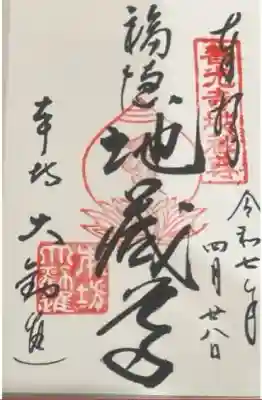 奉拝
令和七年
四月廿八日
福徳
地蔵尊
本坊
大勧進